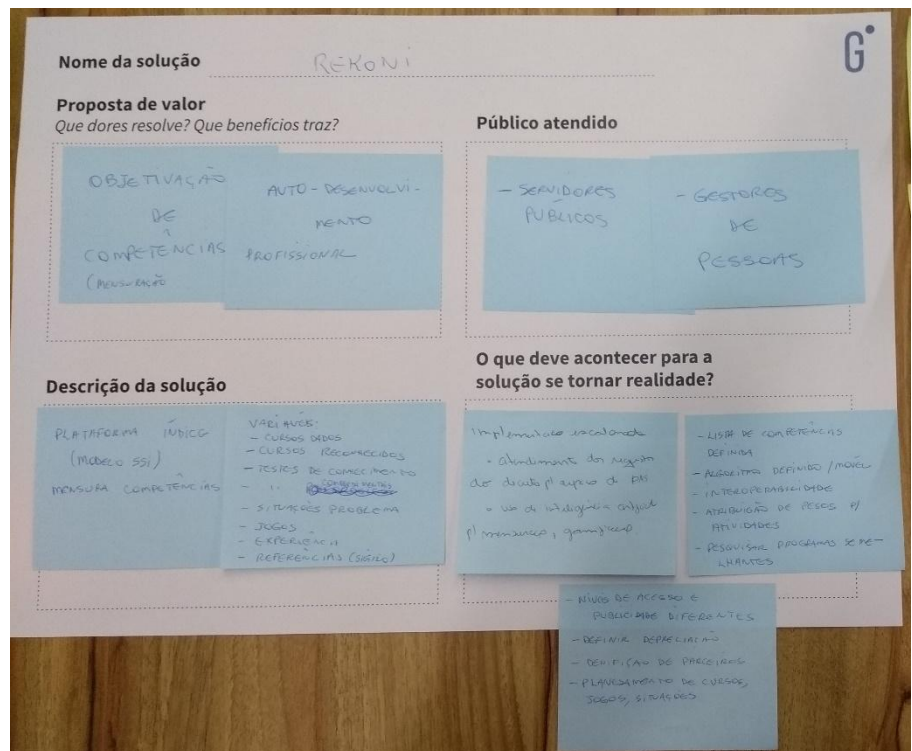 Nome da solução REKONI
G
Proposta de valor
Que dores resolve? Que benefícios traz?
OBJETIVAÇÃO
DE
COMPETÊNCIAS
(MENSURAÇÃO
AUTO-DESENVOLVI-
MENTO
PROFISSIONAL
Público atendido
- SERVIDORES
PÚBLICOS
- GESTORES
DE
PESSOAS
Descrição da solução
PLATAFORMA ÍNDICE
(MODELO SSI)
MENSURA COMPETÊNCIAS
VARIÁVEIS:
- CURSOS DADOS
- CURSOS RECONHECIDOS
- TESTES DE CONHECIMENTO
- " COMPORTAMENTAIS
- SITUAÇÕES PROBLEMA
- JOGOS
- EXPERIÊNCIA
- REFERÊNCIAS (SIGILO)
O que deve acontecer para a
solução se tornar realidade?
Implementação escalonada
- atendimento dos
do decreto p/ de
- uso de inteligência artificial
p/ mensuração,
- LISTA DE COMPETÊNCIAS
DEFINIDA
- ALGORITMO DEFINIDO /
- INTEROPERABILIDADE
- ATRIBUIÇÃO DE PESOS P/
ATIVIDADES
- PESQUISAR PROGRAMAS SEME-
LHANTES
- NÍVEIS DE ACESSO E
PUBLICIDADE DIFERENTES
- DEFINIR DEPRECIAÇÃO
- DEFINIÇÃO DE PARCEIROS
- PLANEJAMENTO DE CURSOS,
JOGOS, SITUAÇÕES